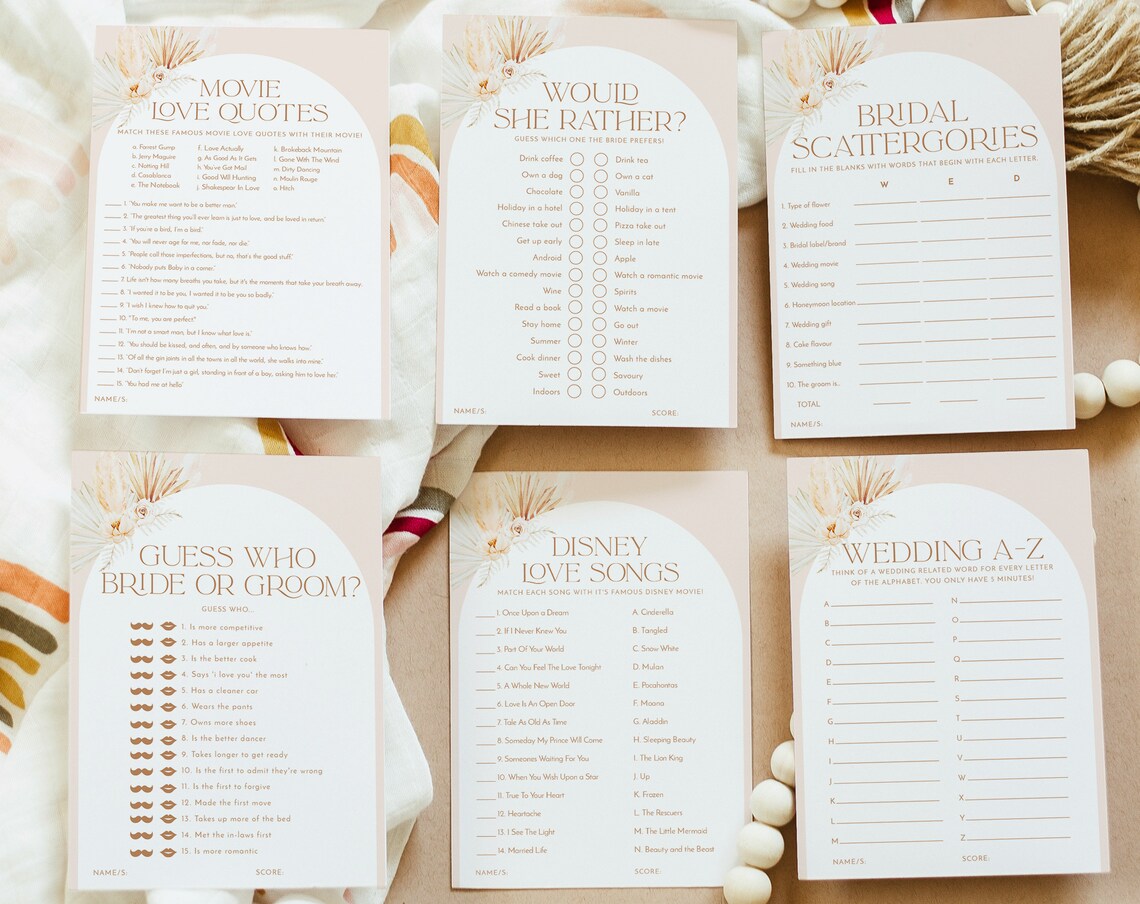 MOVIE
LOVE QUOTES
MATCH THESE FAMOUS MOVIE LOVE QUOTES WITH THEIR MOVIE!
a. Forest Gump
b. Jerry Maguire
c. Notting Hill
d. Casablanca
e. The Notebook
f. Love Actually
g. As Good As It Gets
h. You've Got Mail
i. Good Will Hunting
j. Shakespear In Love
k. Brokeback Mountain
l. Gone With The Wind
m. Dirty Dancing
n. Moulin Rouge
o. Hitch
1. 'You make me want to be a better man.'
2. 'The greatest thing you'll ever learn is just to love, and be loved in return.'
3. 'If you're a bird, I'm a bird.'
4. 'You will never age for me, nor fade, nor die.'
5. 'People call those imperfections, but no, that's the good stuff.'
6. 'Nobody puts Baby in a corner.'
7. Life isn't how many breaths you take, but it's the moments that take your breath away.
8. 'I wanted it to be you. I wanted it to be you so badly.'
9. 'I wish I knew how to quit you.'
10. "To me, you are perfect"
11. 'I'm not a smart man, but I know what love is.'
12. 'You should be kissed, and often, and by someone who knows how.'
13. 'Of all the gin joints in all the towns in all the world, she walks into mine.'
14. 'Don't forget I'm just a girl, standing in front of a boy, asking him to love her.'
15. 'You had me at hello'
NAME/S:
WOULD
SHE RATHER?
GUESS WHICH ONE THE BRIDE PREFERS!
Drink coffee Drink tea
Own a dog Own a cat
Chocolate Vanilla
Holiday in a hotel Holiday in a tent
Chinese take out Pizza take out
Get up early Sleep in late
Android Apple
Watch a comedy movie Watch a romantic movie
Wine Spirits
Read a book Watch a movie
Stay home Go out
Summer Winter
Cook dinner Wash the dishes
Sweet Savoury
Indoors Outdoors
NAME/S: SCORE:
BRIDAL
SCATTERGORIES
FILL IN THE BLANKS WITH WORDS THAT BEGIN WITH EACH LETTER.
W E D
1. Type of flower
2. Wedding food
3. Bridal label/brand
4. Wedding movie
5. Wedding song
6. Honeymoon location
7. Wedding gift
8. Cake flavour
9. Something blue
10. The groom is..
TOTAL
NAME/S:
GUESS WHO
BRIDE OR GROOM?
GUESS WHO...
1. Is more competitive
2. Has a larger appetite
3. Is the better cook
4. Says 'i love you' the most
5. Has a cleaner car
6. Wears the pants
7. Owns more shoes
8. Is the better dancer
9. Takes longer to get ready
10. Is the first to admit they're wrong
11. Is the first to forgive
12. Made the first move
13. Takes up more of the bed
14. Met the in-laws first
15. Is more romantic
NAME/S: SCORE:
DISNEY
LOVE SONGS
MATCH EACH SONG WITH IT'S FAMOUS DISNEY MOVIE!
1. Once Upon a Dream A. Cinderella
2. If I Never Knew You B. Tangled
3. Part Of Your World C. Snow White
4. Can You Feel The Love Tonight D. Mulan
5. A Whole New World E. Pocahontas
6. Love Is An Open Door F. Moana
7. Tale As Old As Time G. Aladdin
8. Someday My Prince Will Come H. Sleeping Beauty
9. Someones Waiting For You I. The Lion King
10. When You Wish Upon a Star J. Up
11. True To Your Heart K. Frozen
12. Heartache L. The Rescuers
13. I See The Light M. The Little Mermaid
14. Married Life N. Beauty and the Beast
NAME/S: SCORE:
WEDDING A-Z
THINK OF A WEDDING RELATED WORD FOR EVERY LETTER
OF THE ALPHABET. YOU ONLY HAVE 5 MINUTES!
A N
B O
C P
D Q
E R
F S
G T
H U
I V
J W
K X
L Y
M Z
NAME/S: SCORE: